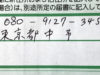 合は、別途所定の届書に記入して
080-9127-345
東京都中央